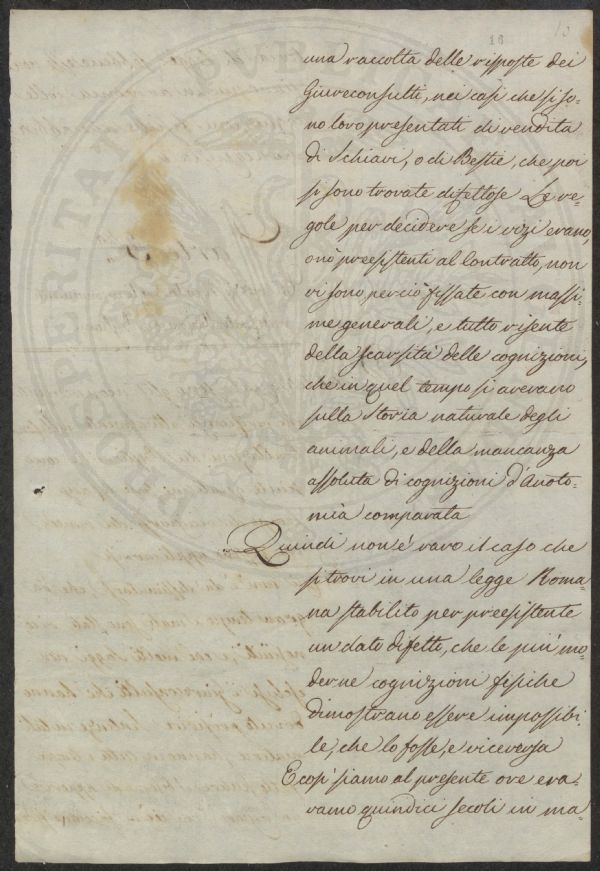 16
10
una raccolta delle risposte dei
Giureconsulti, nei casi che si so=
no loro presentati di vendita
di Schiavi, o di Bestie, che poi
si sono trovate difettose Le re=
gole per decidere se i vizi erano,
o nò preesistenti al Contratto, non
vi sono, perciò fissate con massi=
me generali, e tutto risente
della scarsità delle cognizioni,
che in quel tempo si avevano
sulla Storia naturale degli
animali, e della mancanza
assoluta di cognizioni d'Anoto=
mia comparata
Quindi non é raro il caso che
si trovi in una legge Roma=
na stabilito per preesistente
un dato difetto, che le più mo=
derne cognizioni fisiche
dimostrano essere impossibi=
le, che lo fosse, e viceversa
E così siamo al presente ove era=
vamo quindici secoli in ma=